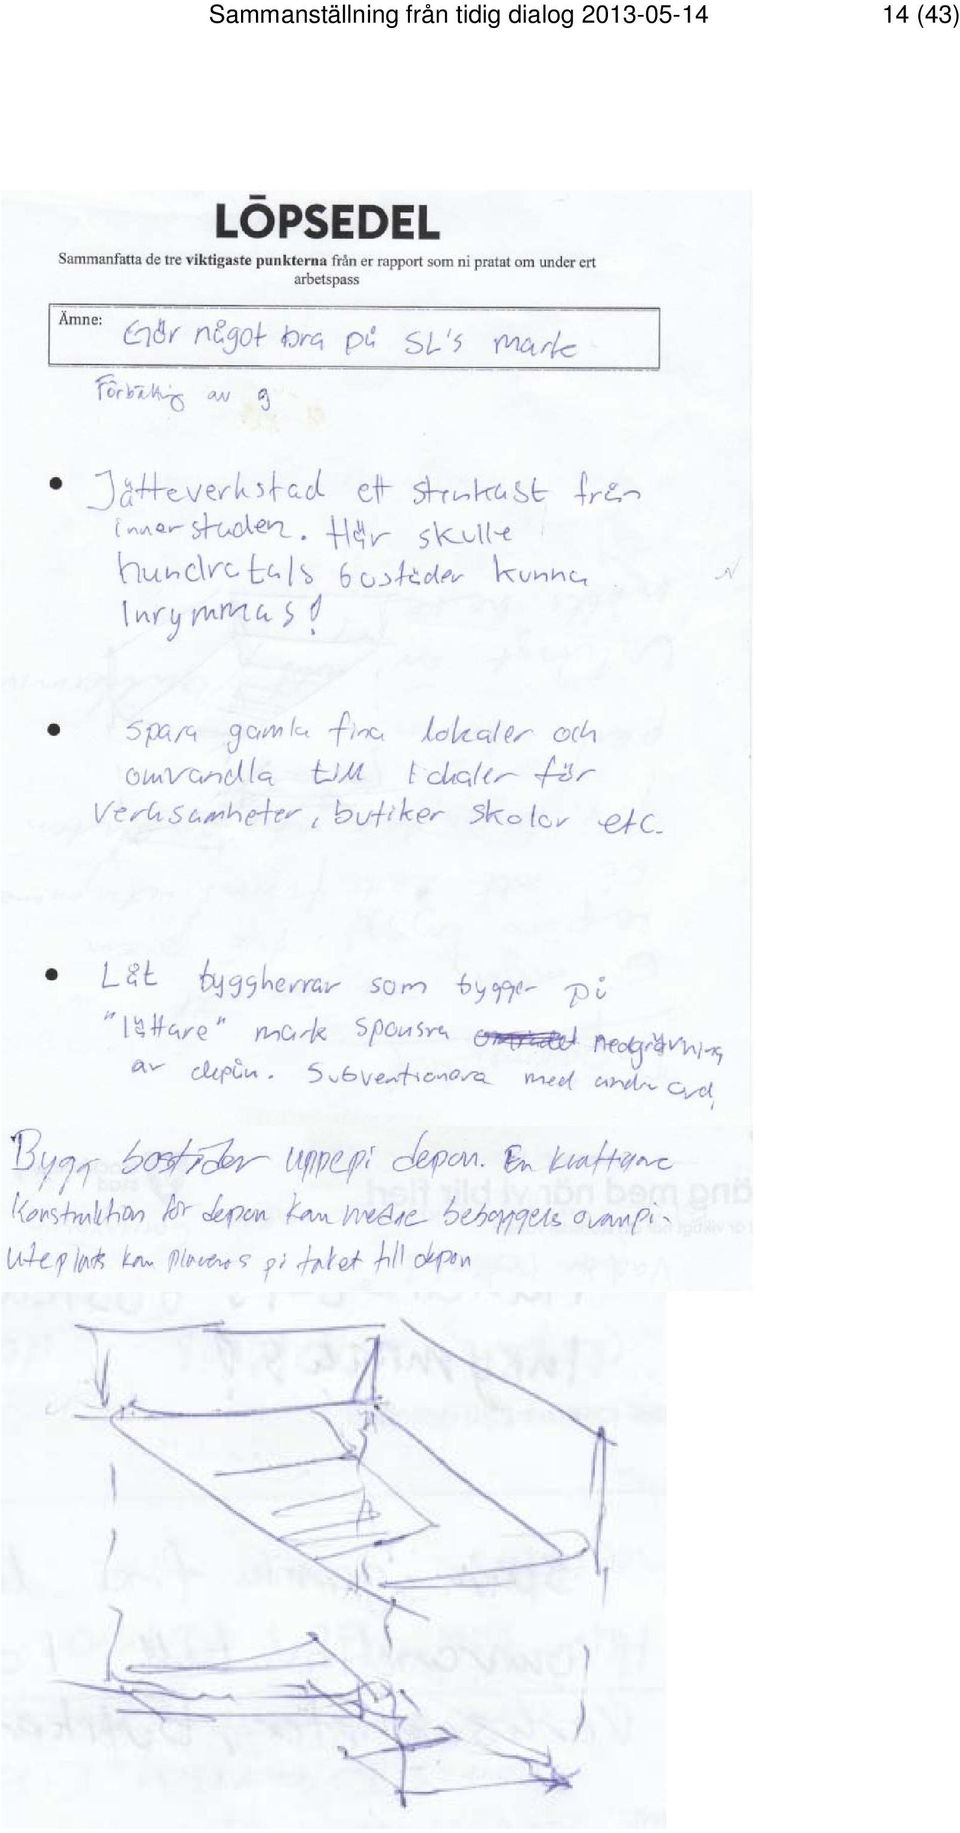 Sammanställning från tidig dialog 2013-05-14 14 (43)
LÖPSEDEL
Sammanfatta de tre viktigaste punkterna från er rapport som ni pratat om under ert
arbetspass
Ämne: Gör något bra på SL's mark
av g
Jätteverkstad ett stenkast från
innerstaden. Här skulle
hundratals bostäder kunna
Inrymmas!
Spara gamla fina lokaler och
omvandla till lokaler för
Verksamheter, butiker skolor etc.
Låt byggherrar som bygger på
"lättare" mark sponsra nedgrävning
av depån. Subventionera med andra ord.
Bygg bostäder uppepå depån. En kraftigare
Konstruktion för depån kan medge bebyggels ovanpå.
Uteplats kan placeras på taket till depån